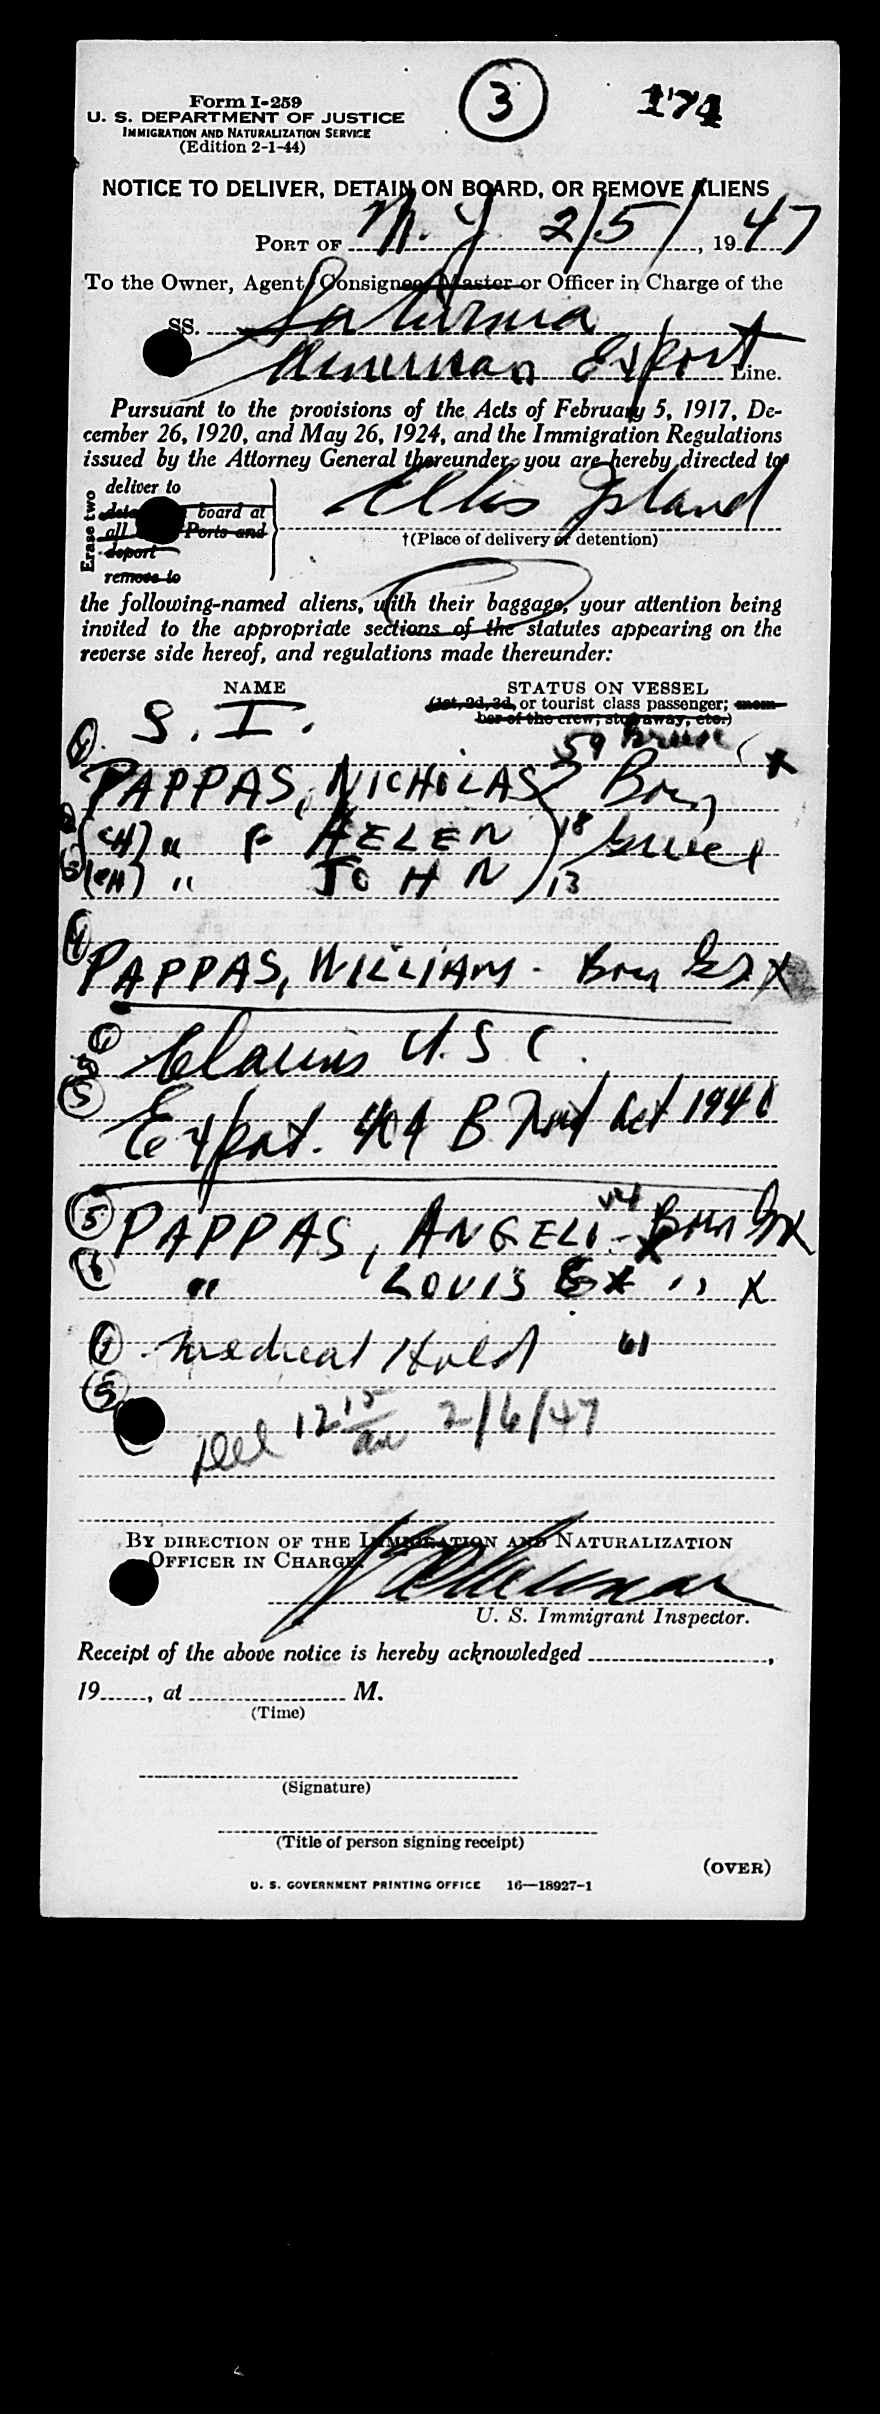 Form I-259
U. S. DEPARTMENT OF JUSTICE
IMMIGRATION AND NATURALIZATION SERVICE
(Edition 2-1-44)
3
174
NOTICE TO DELIVER, DETAIN ON BOARD, OR REMOVE ALIENS
PORT OF N. Y. 2/5/, 1947
To the Owner, Agent, Consignee, Master or Officer in Charge of the
SS. Saturnia
American Export Line.
Pursuant to the provisions of the Acts of February 5, 1917, De-
cember 26, 1920, and May 26, 1924, and the Immigration Regulations
issued by the Attorney General thereunder, you are hereby directed to
Erase two
deliver to
board at
all Ports and
deport
remove to
Ellis Island
†(Place of delivery or detention)
the following-named aliens, with their baggage, your attention being
invited to the appropriate sections of the statutes appearing on the
reverse side hereof, and regulations made thereunder:
NAME STATUS ON VESSEL
(1st, 2d, 3d, or tourist class passenger; mem-
ber of the crew; stowaway, etc.)
S. I. 59
PAPPAS, NICHOLAS
(CH) " HELEN 18
(CH) " JOHN 13
4 PAPPAS, WILLIAM - X
Claims U. S. C.
5 Expat. 404 B Nat Act 1940
5 PAPPAS, ANGELI
6 " LOUIS " X
Medical Hold
Del 12 15 am 2/6/47
BY DIRECTION OF THE IMMIGRATION AND NATURALIZATION
OFFICER IN CHARGE.
U. S. Immigrant Inspector.
Receipt of the above notice is hereby acknowledged ,
19 , at M.
(Time)
(Signature)
(Title of person signing receipt)
(OVER)
U. S. GOVERNMENT PRINTING OFFICE 16—18927-1